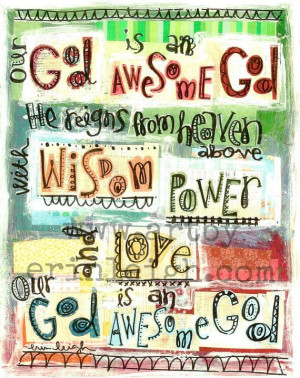 our God is an AWESOME God
He reigns from heaven
above
with WISDOM
POWER
and LOVE
our God is an AWESOME God
erin leigh
www.artby
erinleigh.com